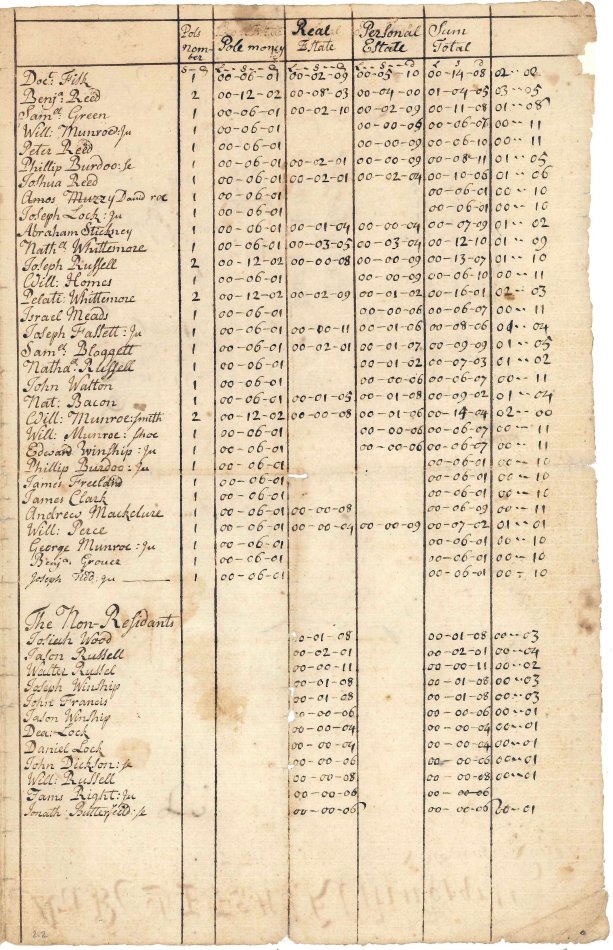 Pols nomber Pole money Real Estate Personal Estate Sum Total
Doc: Fisk 1 00-06-01 00-02-09 00-05-10 00-14-08 02-02
Benja Reed 2 00-12-02 00-08-03 00-04-00 01-04-05 03-05
Samll Green 1 00-06-01 00-02-10 00-02-09 00-11-08 01-08
Will: Munroe: Ju 1 00-06-01 00-00-06 00-06-06 00-11
Peter Reed 1 00-06-01 00-00-09 00-06-10 00-11
Phillip Burdoo: se 1 00-06-01 00-02-01 00-00-09 00-08-11 01-05
Joshua Reed 1 00-06-01 00-02-01 00-02-04 00-10-06 01-06
Amos Muzzy 1 00-06-01 00-06-01 00-10
Joseph Lock: Ju 1 00-06-01 00-06-01 00-10
Abraham Stickney 1 00-06-01 00-01-04 00-00-04 00-07-09 01-02
Nathll Whittemore 1 00-06-01 00-03-05 00-03-04 00-12-10 01-09
Joseph Russell 2 00-12-02 00-00-08 00-00-09 00-13-07 01-10
Will: Homes 1 00-06-01 00-00-09 00-06-10 00-11
Pelati: Whittemore 2 00-12-02 00-02-09 00-01-02 00-16-01 02-03
Israel Meads 1 00-06-01 00-00-06 00-06-07 00-11
Joseph Fassett: Ju 1 00-06-01 00-00-11 00-01-06 00-08-06 01-04
Samll: Bloggett 1 00-06-01 00-02-01 00-01-07 00-09-09 01-05
Natha: Russell 1 00-06-01 00-01-02 00-07-03 01-02
John Walton 1 00-06-01 00-00-06 00-06-07 00-11
Nat: Bacon 1 00-06-01 00-01-05 00-01-08 00-09-02 01-04
Will: Munroe: smith 2 00-12-02 00-00-08 00-01-06 00-14-04 02-00
Will: Munroe: shoe 1 00-06-01 00-00-06 00-06-07 00-11
Edward Winship: Ju 1 00-06-01 00-00-06 00-06-07 00-11
Phillip Burdoo: Ju 1 00-06-01 00-06-01 00-10
James Freeland 1 00-06-01 00-06-01 00-10
James Clark 1 00-06-01 00-06-01 00-10
Andrew Mackclure 1 00-06-01 00-00-08 00-06-09 00-11
Will: Perce 1 00-06-01 00-00-04 00-00-09 00-07-02 01-01
George Munroe: Ju 1 00-06-01 00-06-01 00-10
Benja: Grover 1 00-06-01 00-06-01 00-10
Joseph Ju 1 00-06-01 00-06-01 00-10
The Non-Residants
Josiah Wood 00-01-08 00-01-08 00-03
Jason Russell 00-02-01 00-02-01 00-04
Walter Russel 00-00-11 00-00-11 00-02
Joseph Winship 00-01-08 00-01-08 00-03
John Francis 00-01-08 00-01-08 00-03
Jason Winship 00-00-06 00-00-06 00-01
Dea: Lock 00-00-04 00-00-04 00-01
Daniel Lock 00-00-04 00-00-04 00-01
John Dickson: se 00-00-06 00-00-06 00-01
Will: Russell 00-00-08 00-00-08 00-01
Jams Right: Ju 00-00-06 00-00-06
Jonath: Butterfeeld: se 00-00-06 00-00-06 00-01